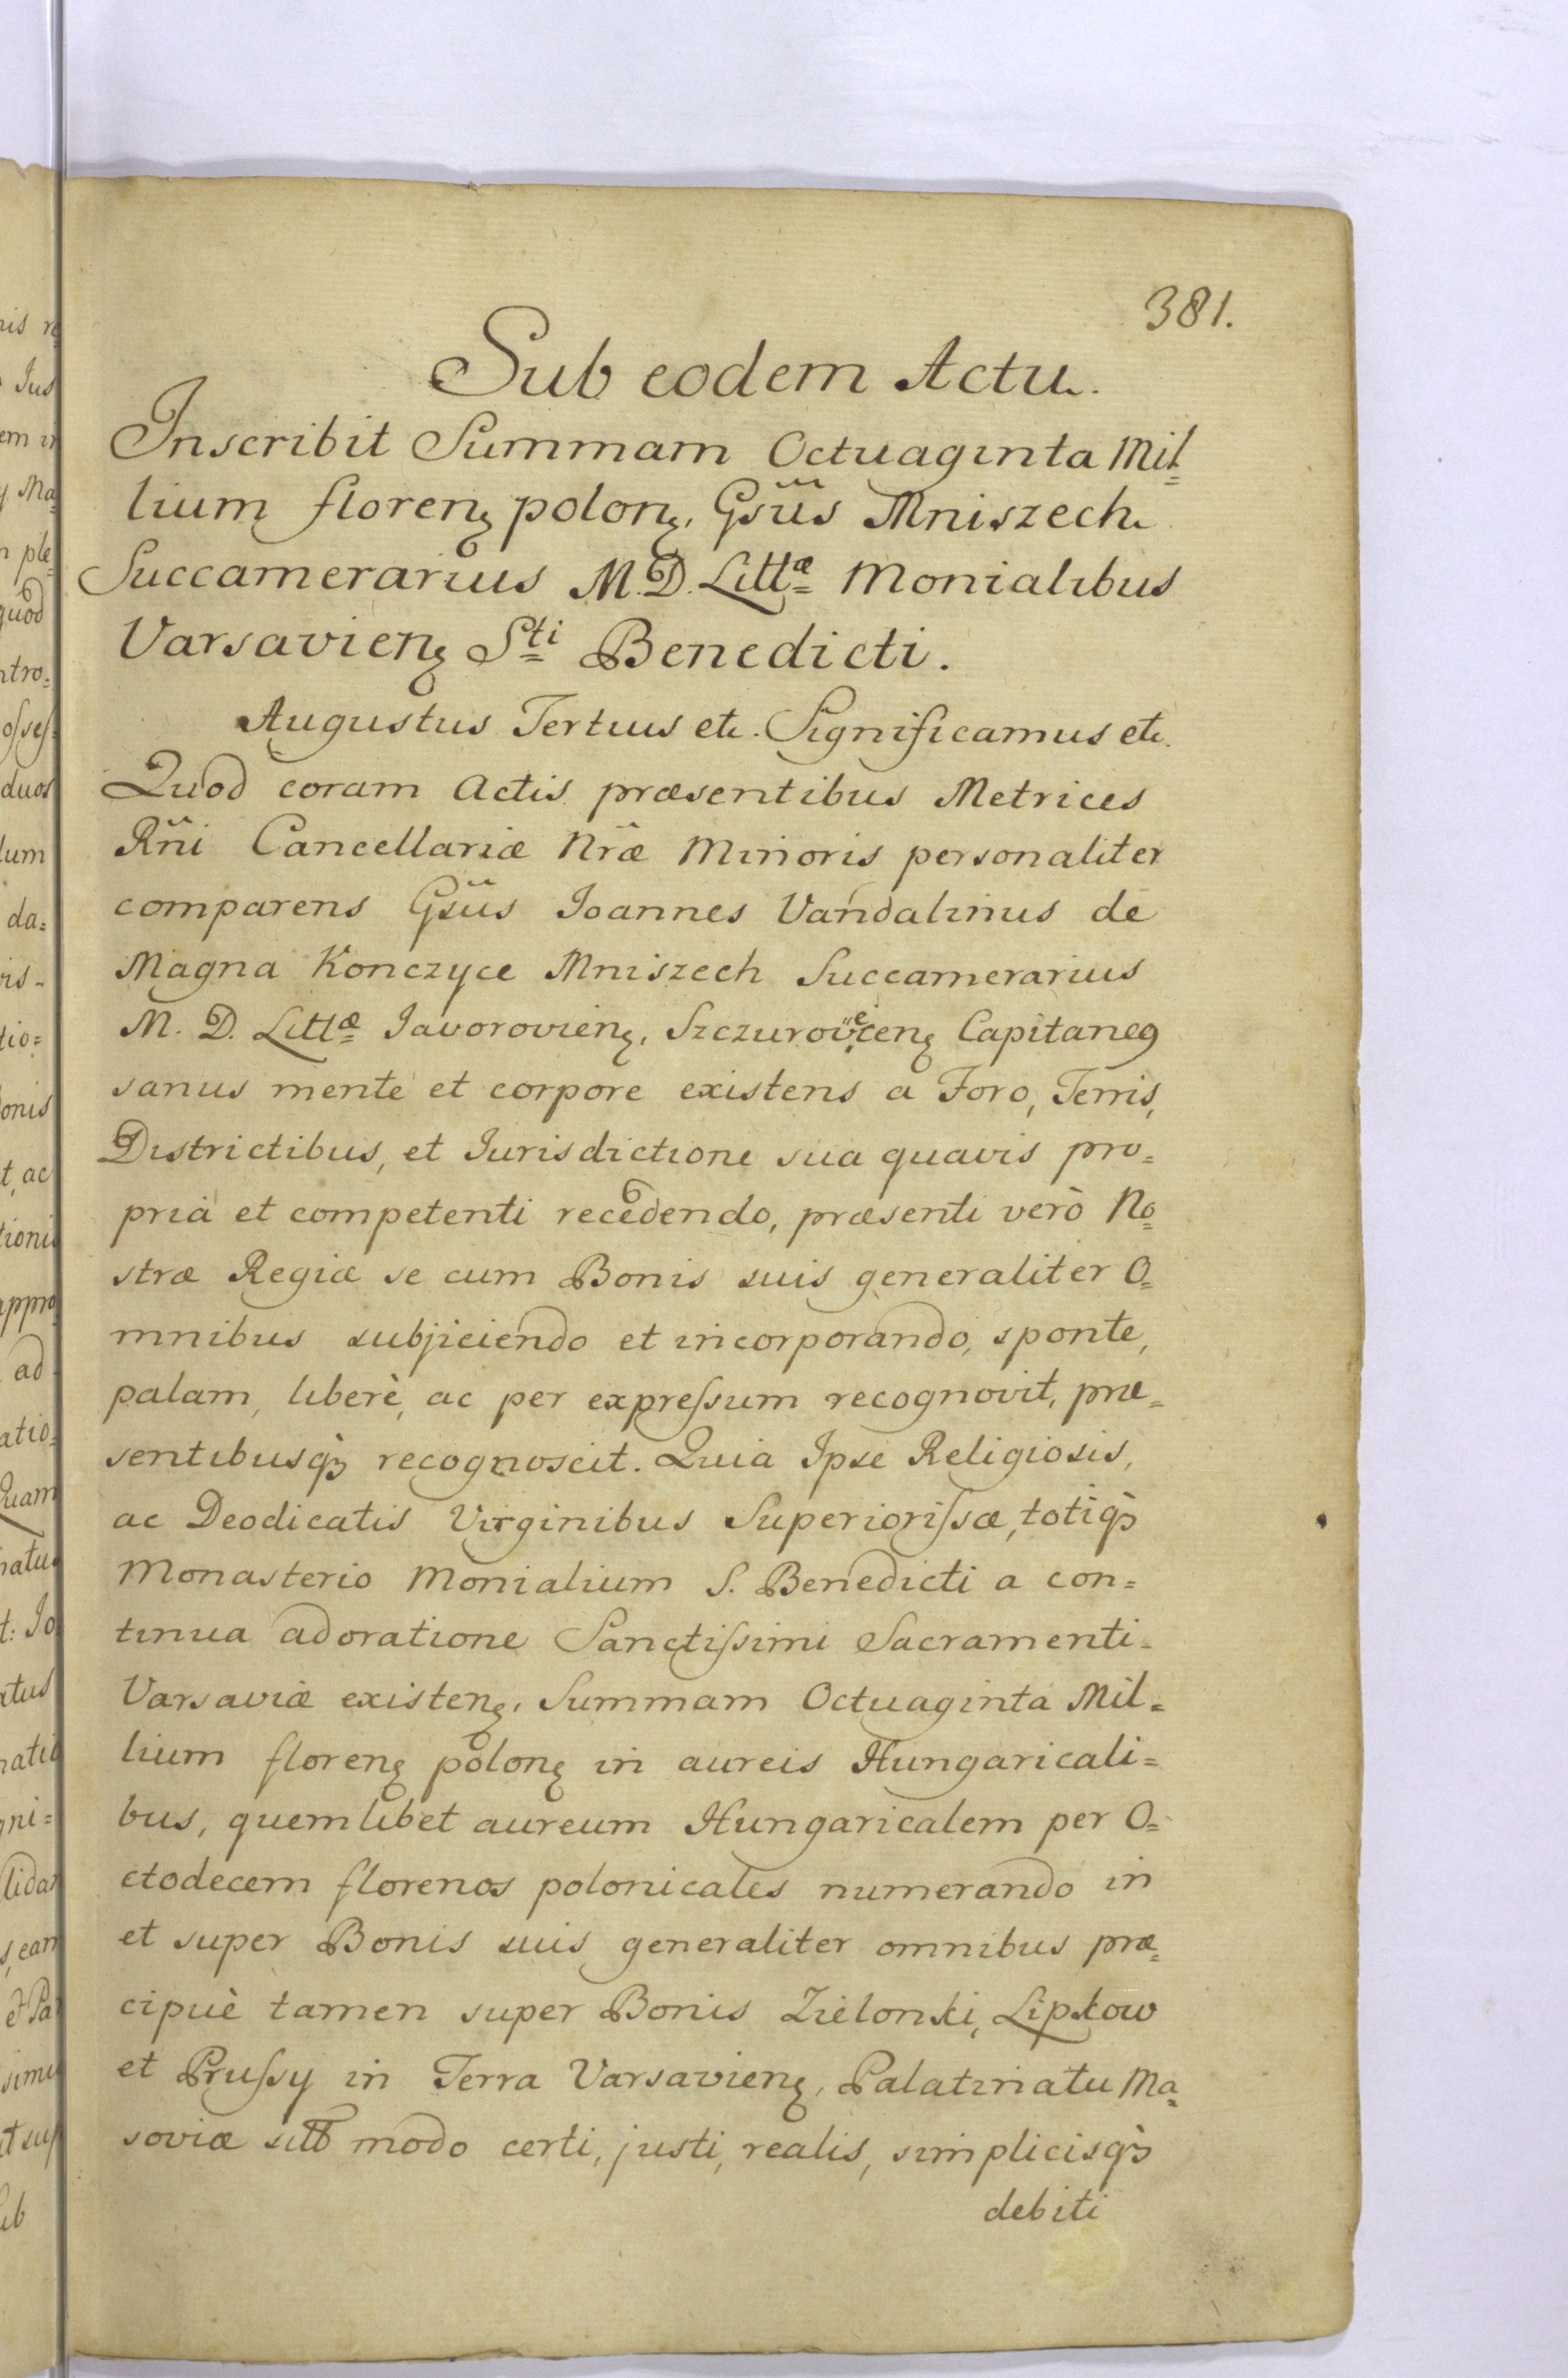 381.
Sub eodem Actu.
Inscribit Summam Octuaginta Mil=
lium florenꝫ polonꝫ, Gsũs Mniszech
Succamerarius M. D. Littæ Monialibus
Varsavienꝫ Sti Benedicti.
Augustus Tertius etc. Significamus etc.
Quod coram Actis præsentibus Metrices
Rñi Cancellariæ Nræ Minoris personaliter
comparens Gsũs Ioannes Vandalinus de
Magna Konczyce Mniszech Succamerarius
M. D. Littæ Iavorovienꝫ, Capitaneꝯ
sanus mente et corpore existens a Foro, Terris,
Districtibus, et Iurisdictione sua quavis pro=
pria et competenti recedendo, præsenti verò No=
stræ Regiæ se cum Bonis suis generaliter O=
mnibus subjiciendo et incorporando, sponte,
palam, liberè, ac per expreſsum recognovit, præ=
sentibusqꝫ recognoscit. Quia Ipse Religiosis,
ac Deodicatis Virginibus Superioriſsæ, totiqꝫ
Monasterio Monialium S. Benedicti a con=
tinua adoratione Sanctiſsimi Sacramenti
Varsaviæ existenꝫ, Summam Octuaginta Mil=
lium florenꝫ polonꝫ in aureis Hungaricali=
bus, quemlibet aureum Hungaricalem per O=
ctodecem florenos polonicales numerando in
et super Bonis suis generaliter omnibus præ=
cipuè tamen super Bonis Zielonki, Lipkow
et Pruſsy in Terra Varsavienꝫ, Palatinatu Ma=
soviæ modo certi, justi, realis, simplicisqꝫ
debiti